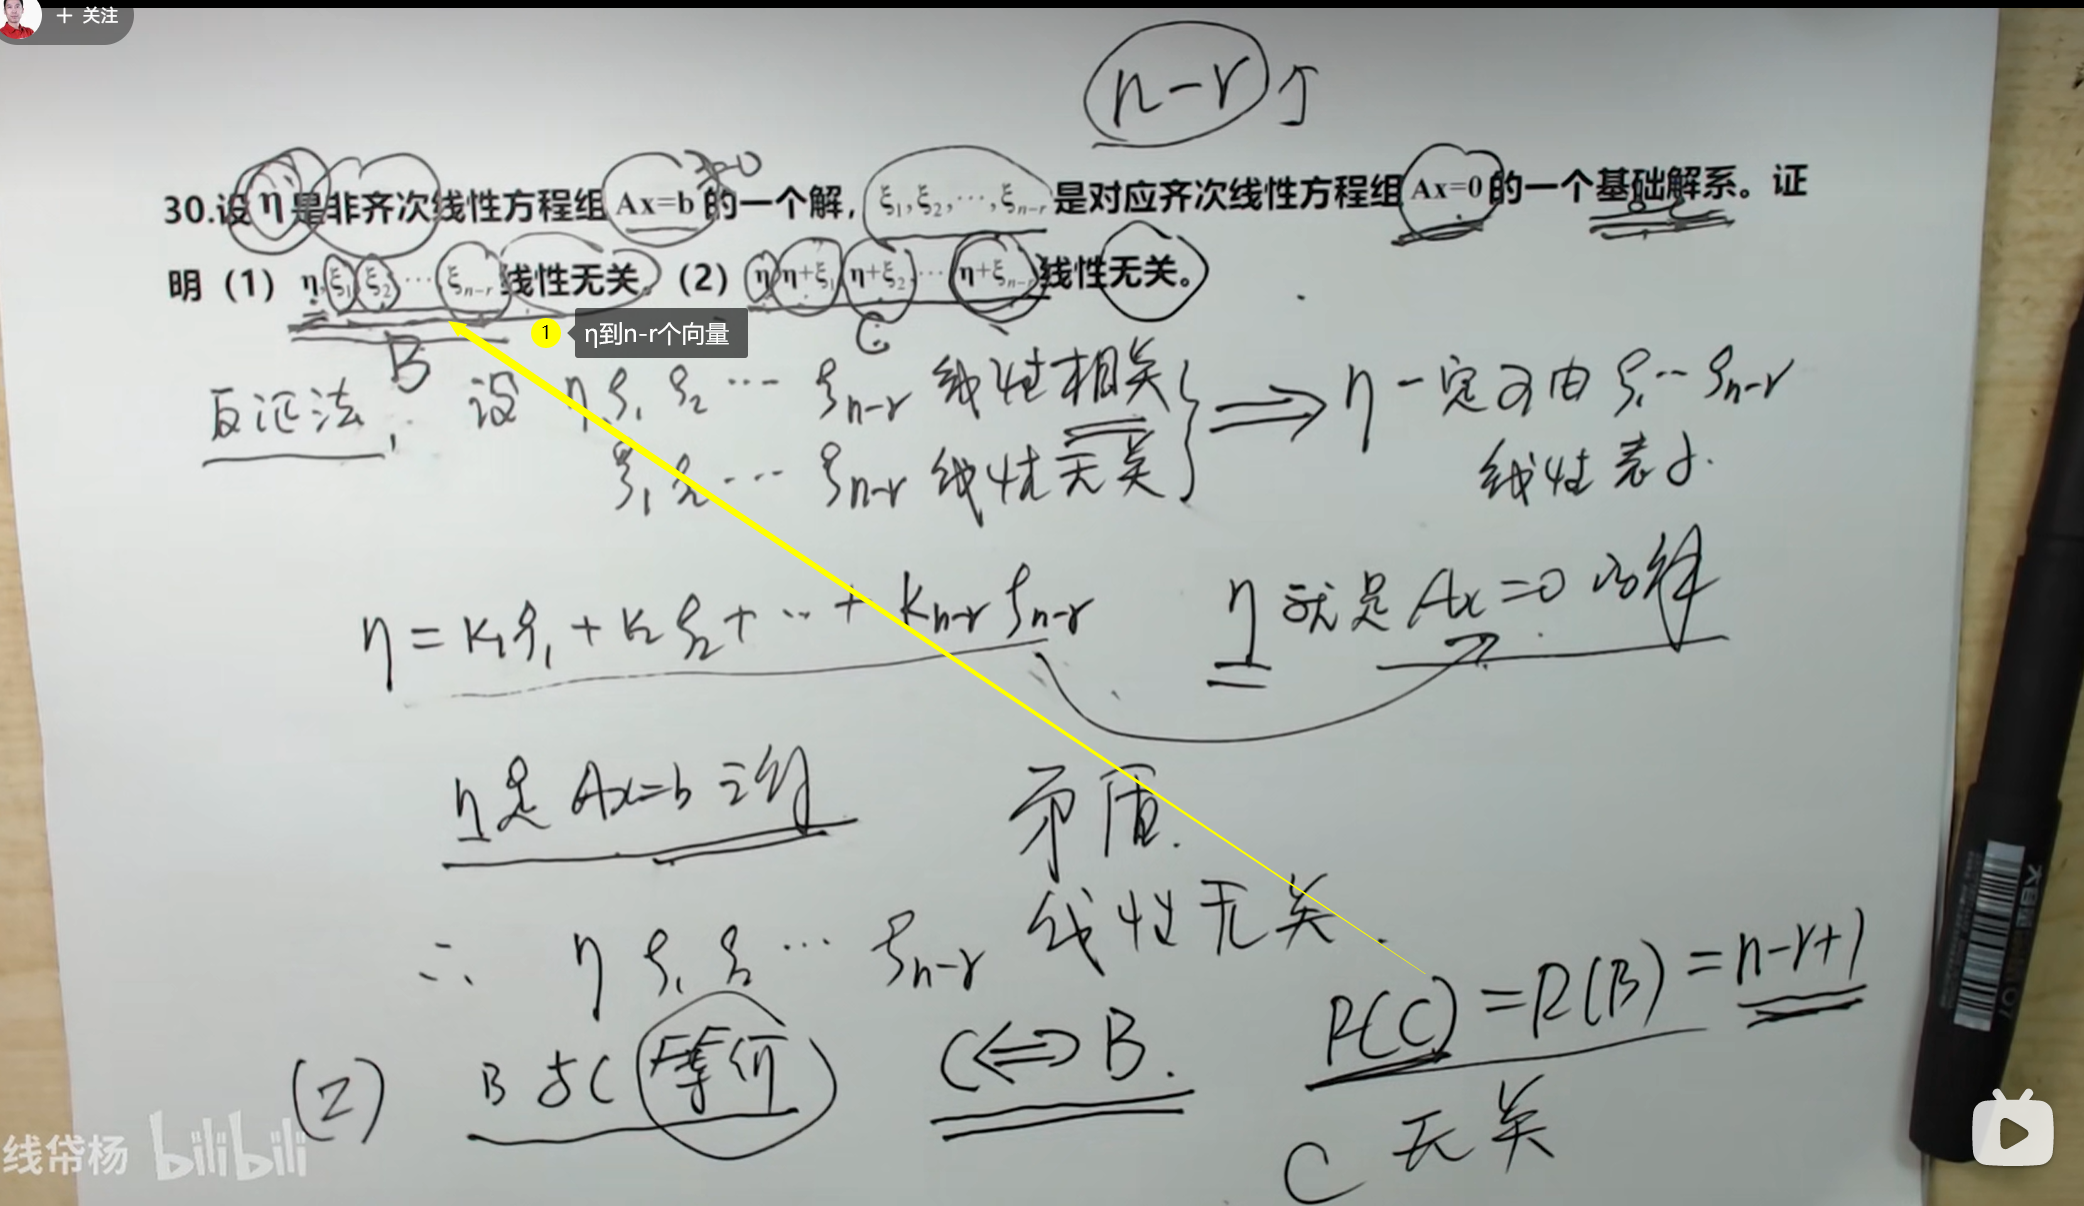 + 关注
n-r个
≠0
30.设 η 是非齐次线性方程组 Ax=b 的一个解，ξ₁,ξ₂,⋯,ξₙ₋ᵣ 是对应齐次线性方程组 Ax=0 的一个基础解系。证
明（1） η,ξ₁,ξ₂,⋯ξₙ₋ᵣ 线性无关。（2） η,η+ξ₁,η+ξ₂,⋯η+ξₙ₋ᵣ 线性无关。
1 η到n-r个向量
B C
反证法, 设 η ξ₁ ξ₂ ⋯ ξₙ₋ᵣ 线性相关 ⇒ η一定可由 ξ₁⋯ξₙ₋ᵣ
ξ₁ ξ₂ ⋯ ξₙ₋ᵣ 线性无关 线性表示.
η = k₁ξ₁ + k₂ξ₂ + ⋯ + kₙ₋ᵣξₙ₋ᵣ η 就是 Ax=0 的解
η是 Ax=b 之解 矛盾.
∴ η ξ₁ ξ₂ ⋯ ξₙ₋ᵣ 线性无关.
R(C) = R(B) = n-r+1
(2) B与C等价 C⇔B.
C 无关
线帒杨 bilibili